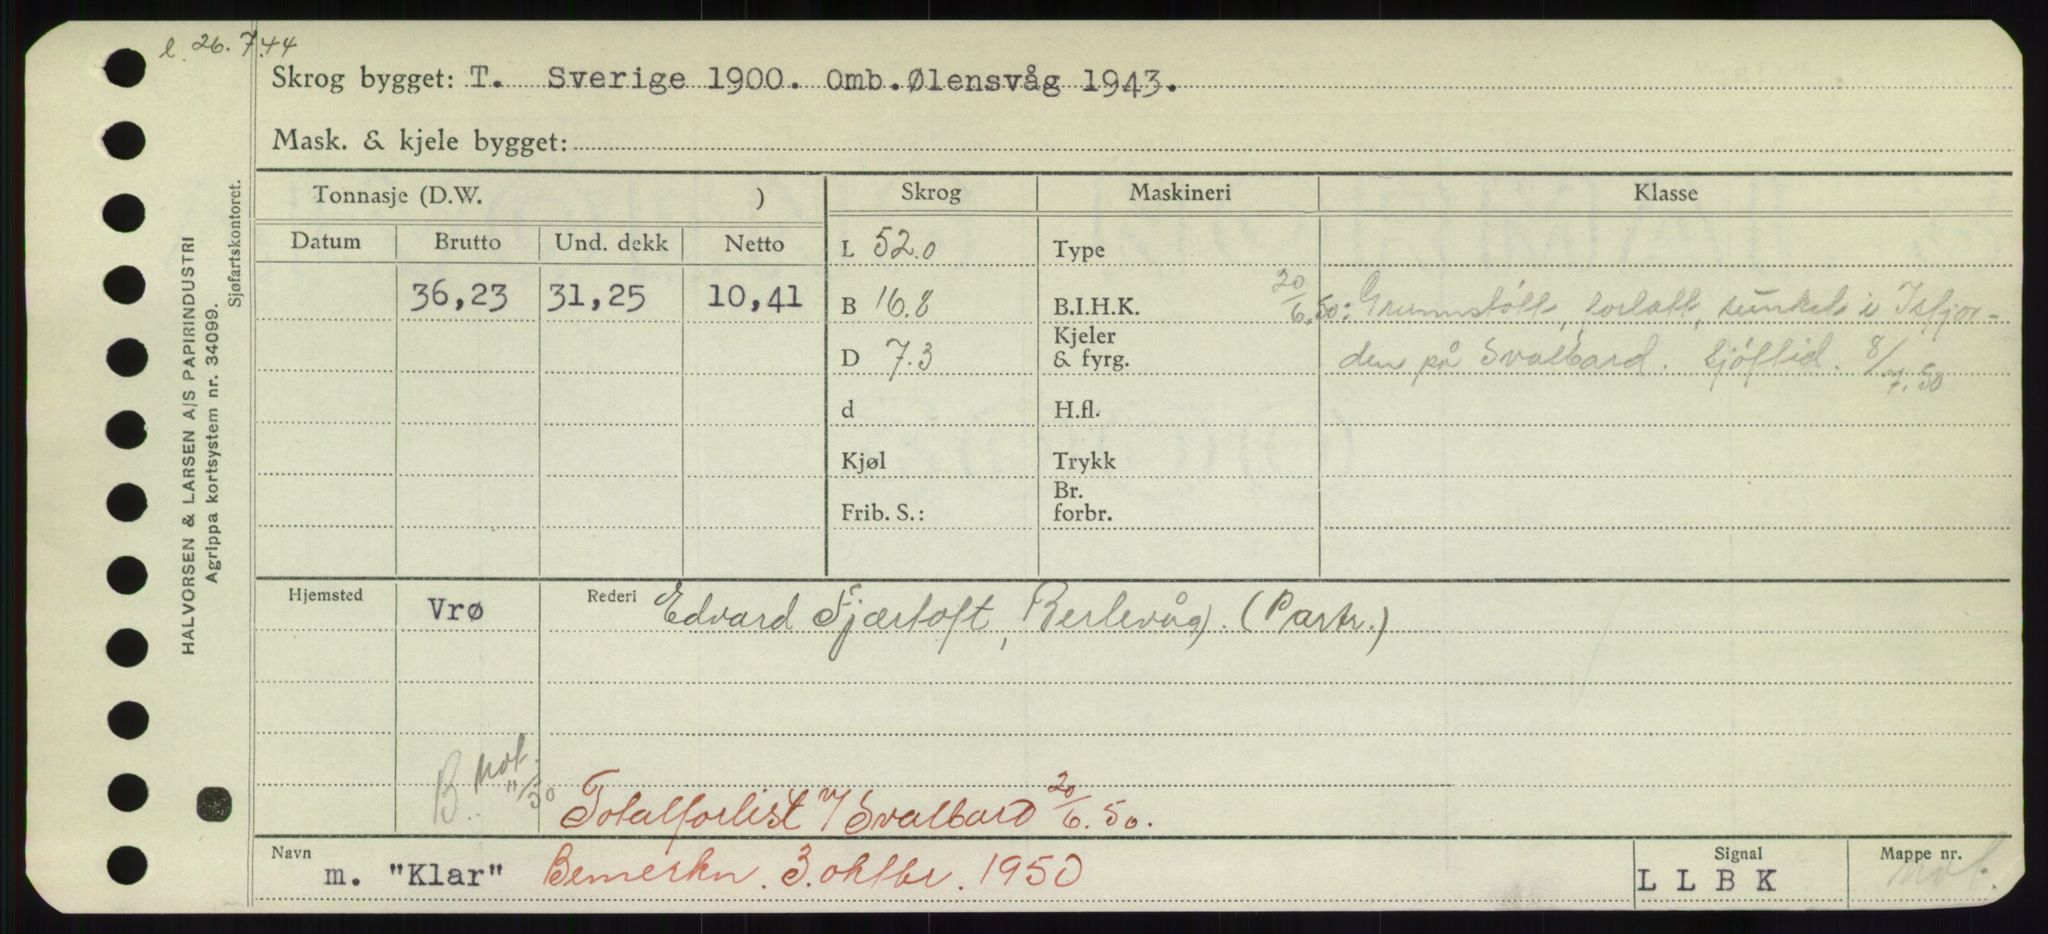 l. 26.7.44
Skrog bygget: T. Sverige 1900. Omb. Ølensvåg 1943.
Mask. & kjele bygget:
Tonnasje (D.W. ) Skrog Maskineri Klasse
Datum Brutto Und. dekk Netto
L 52.0 Type
36,23 31,25 10,41 B 16.8 B.I.H.K. 20/6.50: Grunnstøtt, forlatt, sunket i Isfjor-
D 7.3 Kjeler & fyrg. den på Svalbard. Sjøftid. 8/7.50
d H.fl.
Kjøl Trykk
Frib. S.: Br. forbr.
Hjemsted Vrø Rederi Edvard Fjærtoft, Berlevåg. (Partr.)
B. Not. 11/50
Totalforlist v/ Svalbard 20/6.50.
Navn m. "Klar" Bemerkn. 3. oktbr. 1950
Signal L L B K
Mappe nr. not.
HALVORSEN & LARSEN A/S PAPIRINDUSTRI
Agrippa kortsystem nr. 34099.
Sjøfartskontoret.